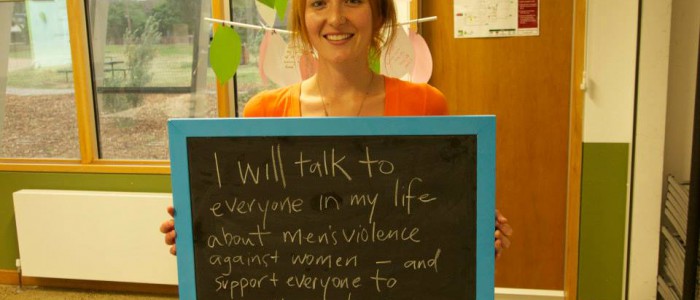 I will talk to
everyone in my life
about men's violence
against women – and
support everyone to